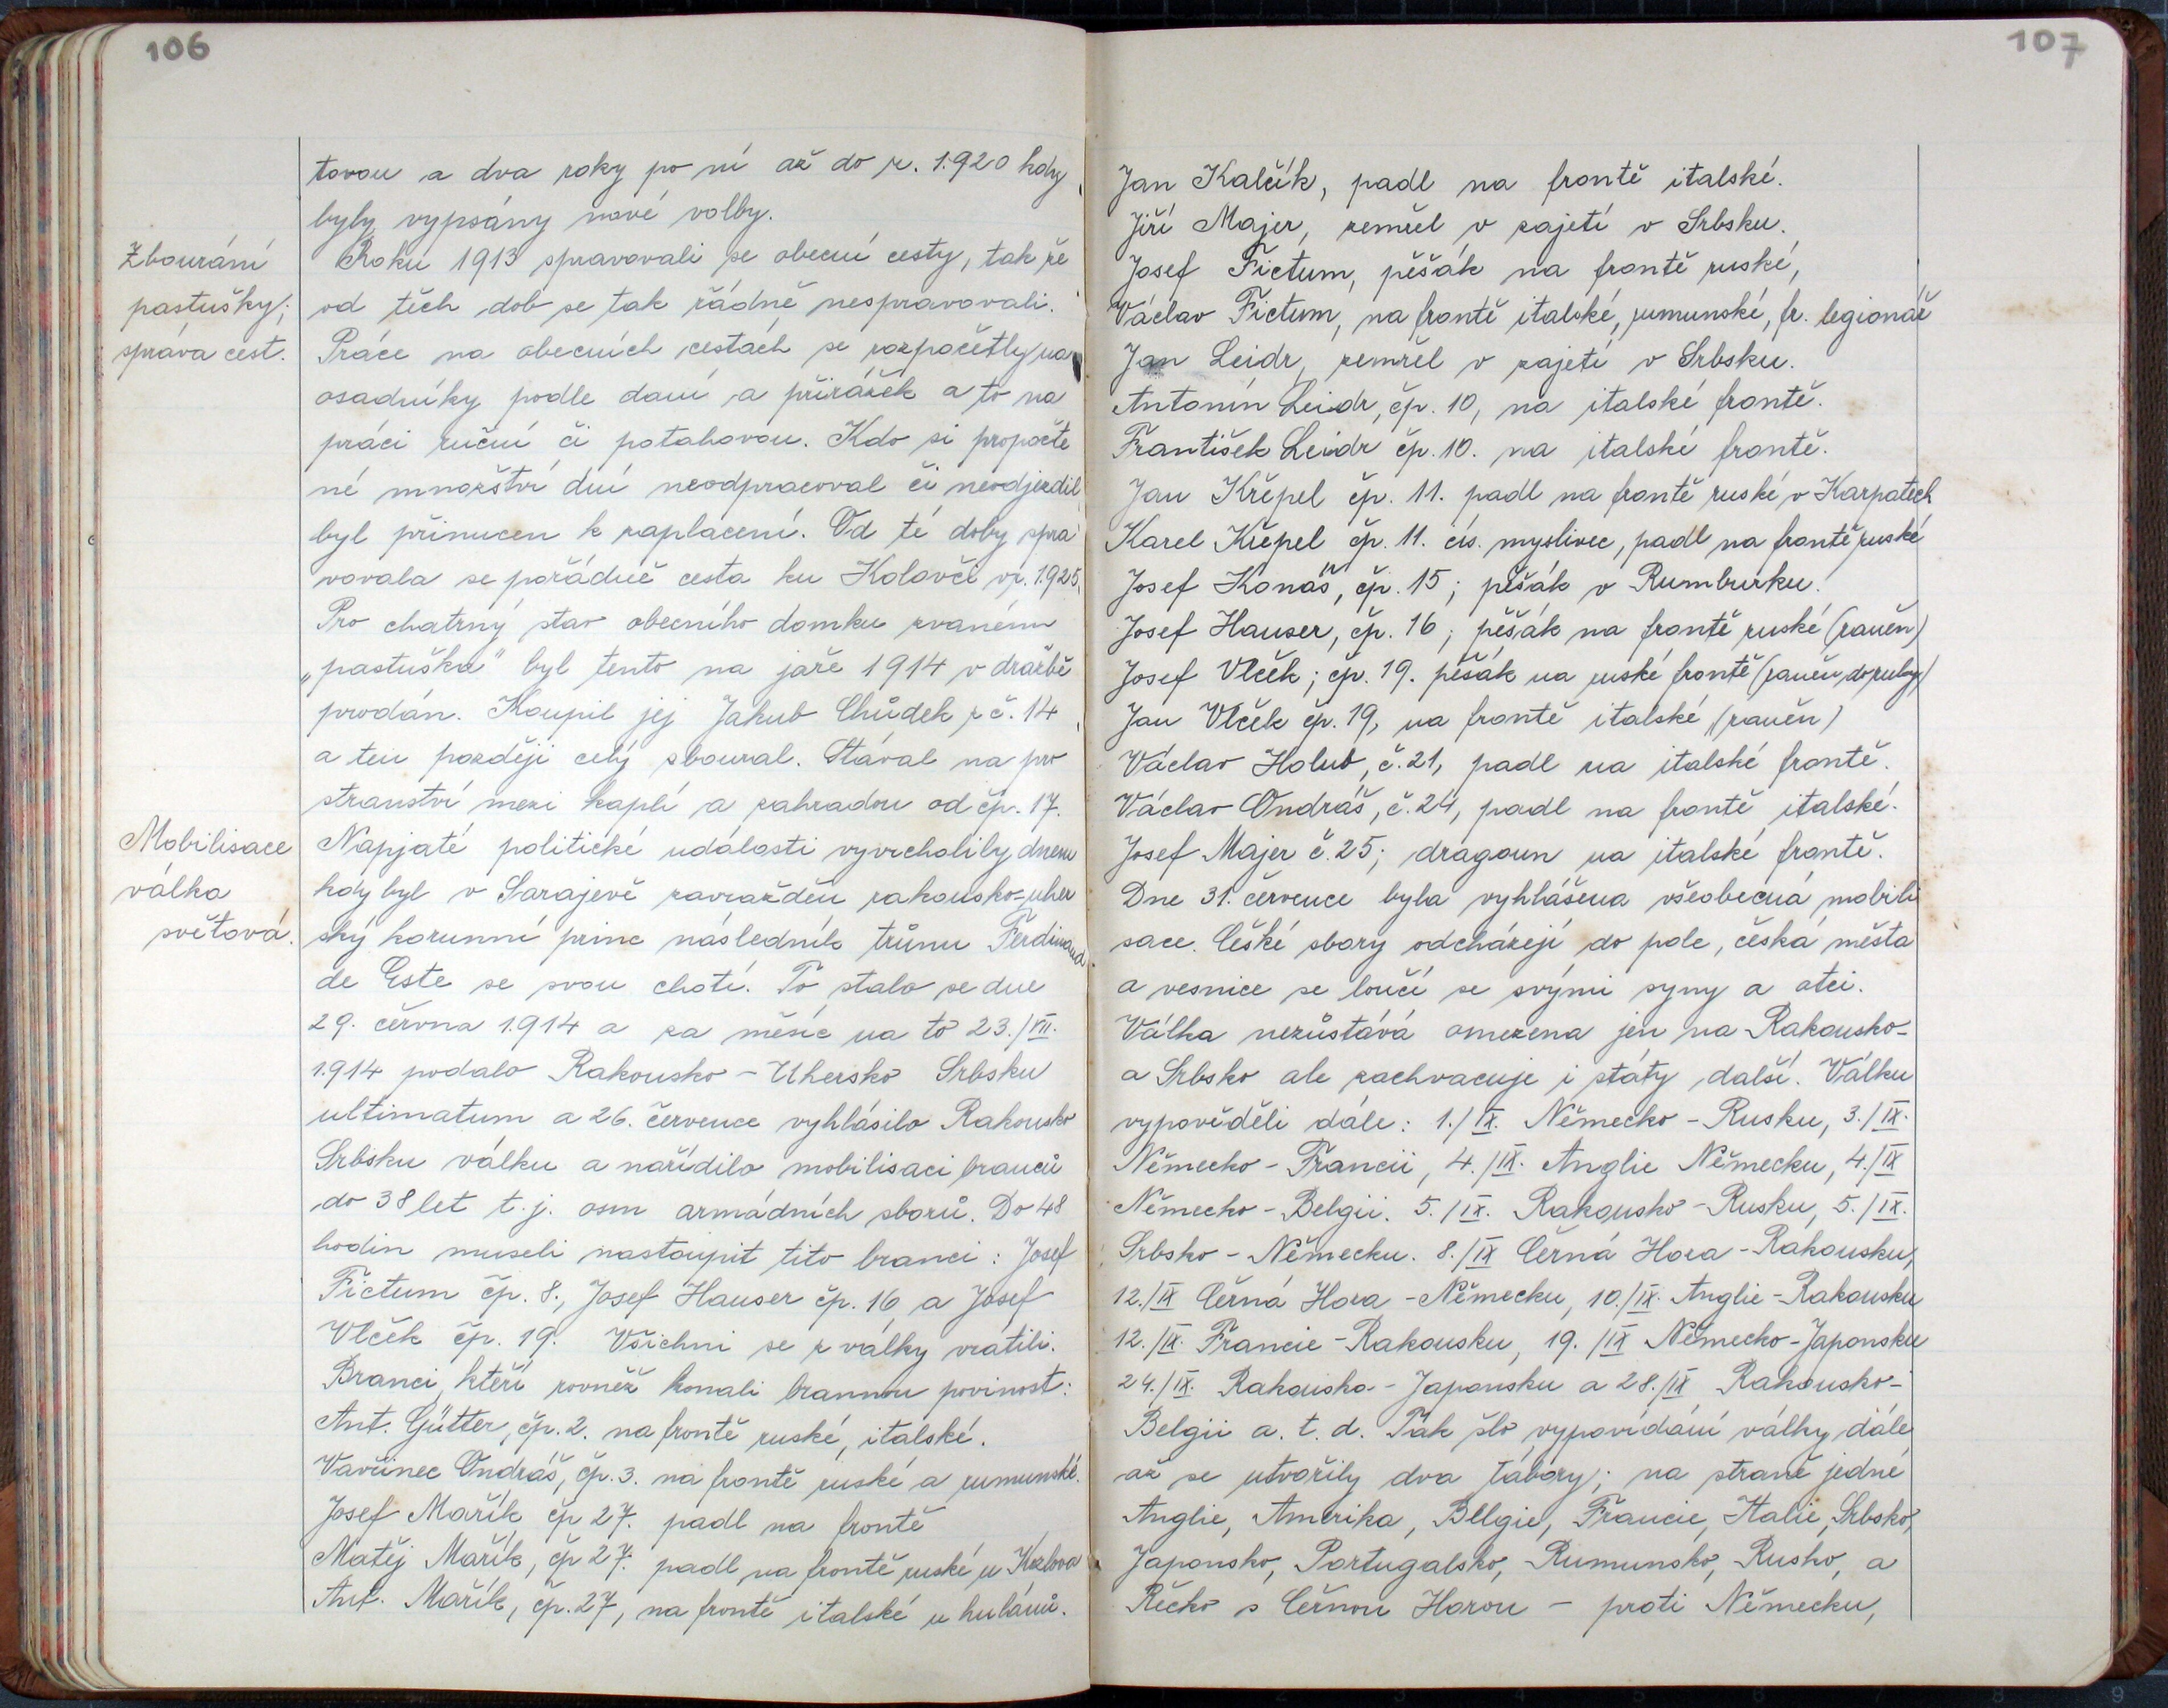 106
tovou a dva roky po ní až do r. 1920 kdy
byly vypsány nové volby.
Zbourání
pastušky;
správa cest.
Roku 1913 spravovali se obecní cesty, tak že
od těch dob se tak řádně nespravovali.
Práce na obecních cestách se rozpočetly na
osadníky podle daní a přirážek a to na
práci ruční či potahovou. Kdo si propočte
né množství dní neodpracoval či neodjezdil
byl přinucen k zaplacení. Od té doby spra
vovala se pořádně cesta ku Kolovči v r. 1925.
Pro chatrný stav obecního domku zvanému
„pastuška" byl tento na jaře 1914 v dražbě
prodán. Koupil jej Jakub Chůdek z č. 14
a ten později celý zboural. Stával na pro
stranství mezi kaplí a zahradou od čp. 17.
Mobilisace
válka
světová.
Napjaté politické události vyvrcholily dnem
kdy byl v Sarajevě zavražděn rakousko-uher
ský korunní princ následník trůnu Ferdinand
de Este se svou chotí. To stalo se dne
29. června 1914 a za měsíc na to 23./VII.
1914 podalo Rakousko-Uhersko Srbsku
ultimatum a 26. července vyhlásilo Rakousko
Srbsku válku a nařídilo mobilisaci branců
do 38 let t. j. osm armádních sborů. Do 48
hodin museli nastoupit tito branci: Josef
Fictum čp. 8., Josef Hauser čp. 16 a Josef
Vlček čp. 19. Všichni se z války vrátili.
Branci, kteří rovněž konali brannou povinost:
Ant. Gütter, čp. 2. na frontě ruské, italské.
Vavřinec Ondráš, čp. 3. na frontě ruské a rumunské.
Josef Mařík čp 27. padl na frontě
Matěj Mařík, čp 27. padl na frontě ruské u
Ant. Mařík, čp. 27, na frontě italské u hulánů.
107
Jan Kalčík, padl na frontě italské.
Jiří Majer, zemřel v zajetí v Srbsku.
Josef Fictum, pěšák na frontě ruské,
Václav Fictum, na frontě italské, rumunské, fr. legionář
Jan Leidr, zemřel v zajetí v Srbsku.
Antonín Leidr, čp. 10, na italské frontě.
František Leidr čp. 10. na italské frontě.
Jan Křepel čp. 11. padl na frontě ruské v Karpatech
Karel Křepel čp. 11. cís. myslivec, padl na frontě ruské
Josef Konáš, čp. 15; pěšák v Rumburku.
Josef Hauser, čp. 16; pěšák na frontě ruské (raněn)
Josef Vlček; čp. 19. pěšák na ruské frontě (raněn do ruky)
Jan Vlček čp. 19, na frontě italské (raněn)
Václav Holub, č. 21, padl na italské frontě.
Václav Ondráš, č. 24, padl na frontě italské.
Josef Majer č. 25; dragoun na italské frontě.
Dne 31. července byla vyhlášena všeobecná mobili
sace. České sbory odcházejí do pole, česká města
a vesnice se loučí se svými syny a otci.
Válka nezůstává omezena jen na Rakousko-
a Srbsko ale zachvacuje i státy další. Válku
vypověděli dále: 1./IX. Německo-Rusku, 3./IX.
Německo-Francii, 4./IX. Anglie Německu, 4./IX
Německo-Belgii. 5./IX. Rakousko-Rusku, 5./IX.
Srbsko-Německu. 8./IX Černá Hora-Rakousku,
12./IX Černá Hora-Německu, 10./IX. Anglie-Rakousku
12./IX. Francie-Rakousku, 19./IX Německo-Japonsku
24./IX. Rakousko-Japonsku a 28./IX Rakousko-
Belgii a. t. d. Tak šlo vypovídání války dále
až se utvořily dva tábory; na straně jedné
Anglie, Amerika, Bélgie, Francie, Italie, Srbsko,
Japonsko, Portugalsko, Rumunsko, Rusko, a
Řecko s Černou Horou - proti Německu,